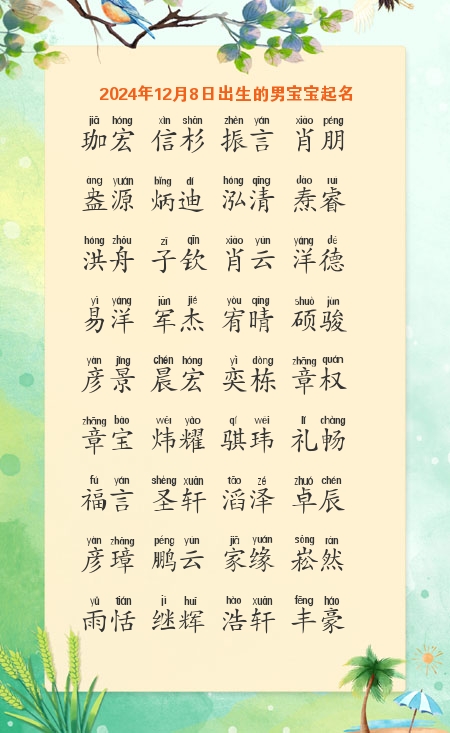 2024年12月8日出生的男宝宝起名
jiā hóng xìn shān zhèn yán xiào péng
珈宏 信杉 振言 肖朋
àng yuán bǐng dí hóng qīng dào ruì
盎源 炳迪 泓清 焘睿
hóng zhōu zǐ qīn xiào yún yáng dé
洪舟 子钦 肖云 洋德
yì yáng jūn jié yòu qíng shuò jùn
易洋 军杰 宥晴 硕骏
yàn jǐng chén hóng yì dòng zhāng quán
彦景 晨宏 奕栋 章权
zhāng bǎo wěi yào qí wěi lǐ chàng
章宝 炜耀 骐玮 礼畅
fú yán shèng xuān tāo zé zhuó chén
福言 圣轩 滔泽 卓辰
yàn zhāng péng yún jiā yuán sōng rán
彦璋 鹏云 家缘 崧然
yǔ tián jì huī hào xuān fēng háo
雨恬 继辉 浩轩 丰豪